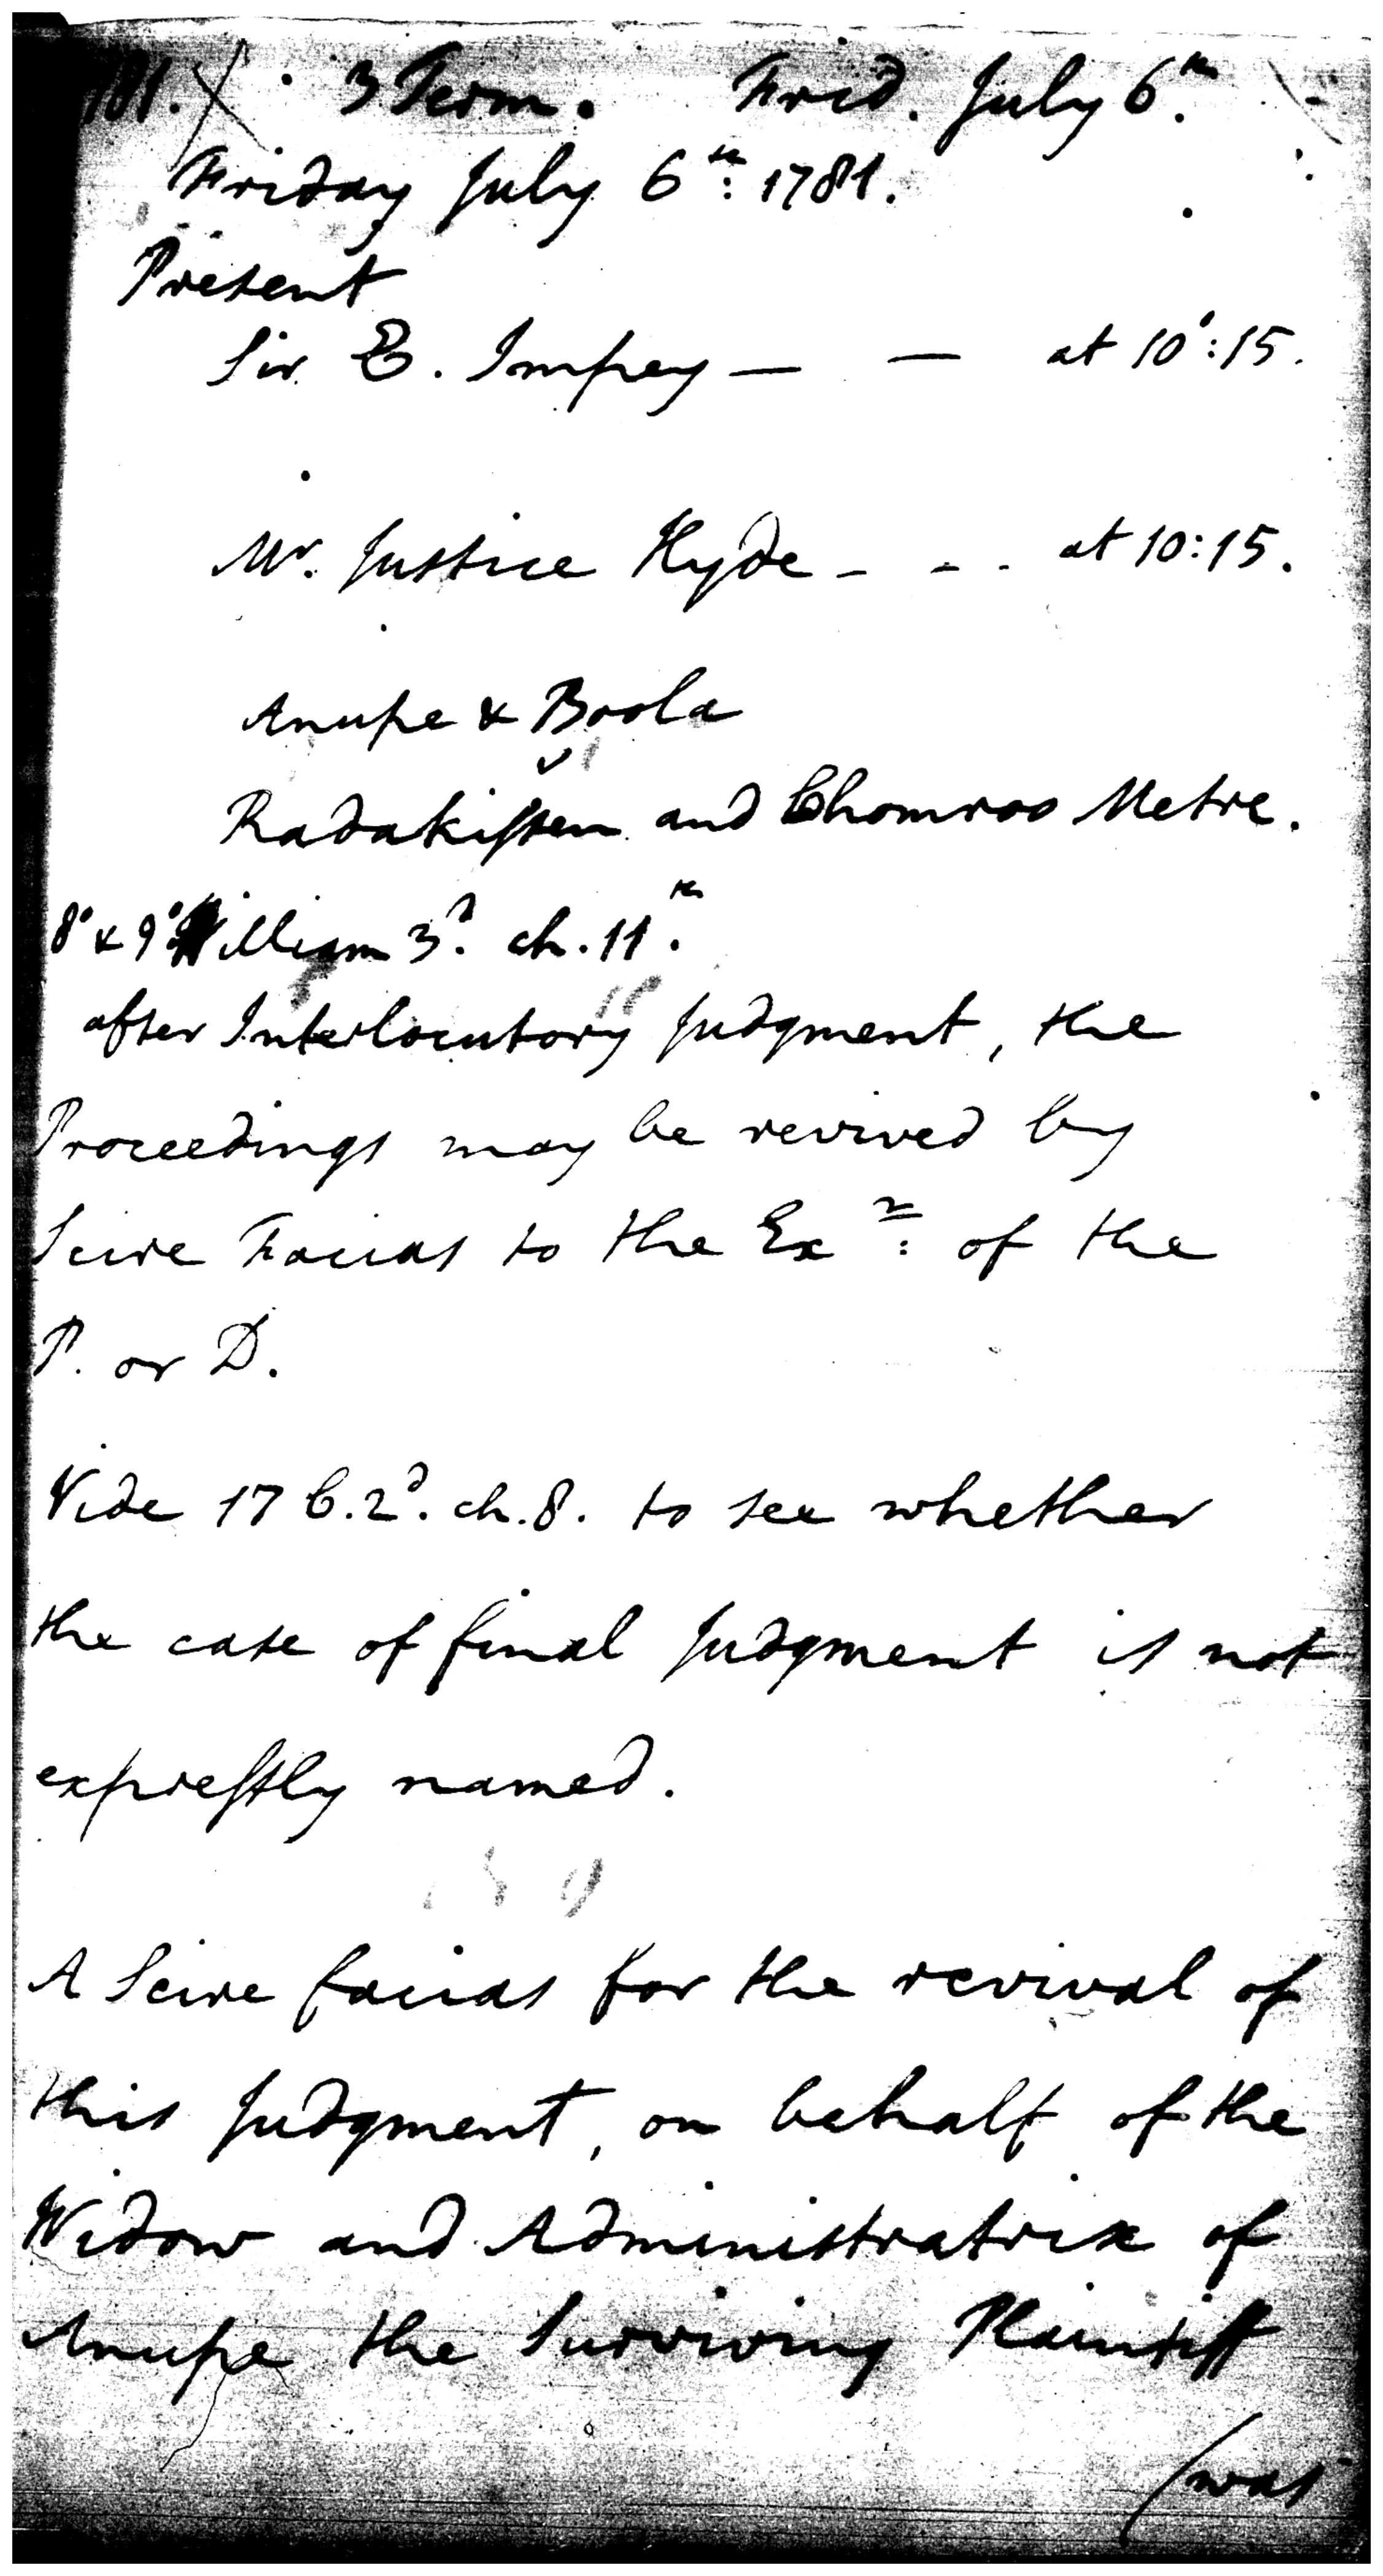 181. 3 Term. Frid. July 6th.
Friday July 6th: 1781.
Present
Sir E. Impey — — at 10':15.
Mr. Justice Hyde - - - at 10:15.
Anupe & Boola
v
Radakissen and Chomroo Metre.
8' & 9' William 3d. ch. 11th.
after Interlocutory Judgment, the
Proceedings may be revived by
Scire Facias to the Exr: of the
P. or D.
Vide 17 C. 2d. ch. 8. to see whether
the case of final Judgment is not
expressly named.
A Scire facias for the revival of
this Judgment, on behalf of the
Widow and Administratrix of
Anupe the Surviving Plaintiff
(was